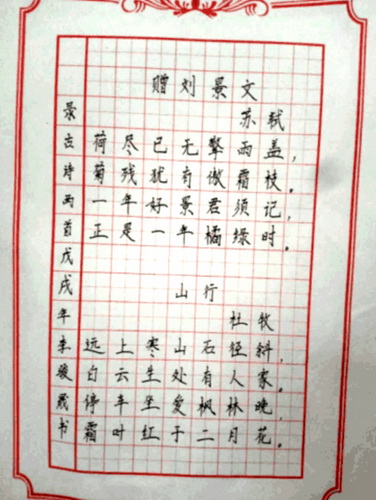 赠刘景文
苏轼
荷尽已无擎雨盖，
菊残犹有傲霜枝。
一年好景君须记，
正是一年橘绿时。
山行
杜牧
远上寒山石径斜，
白云生处有人家。
停车坐爱枫林晚，
霜叶红于二月花。
录古诗两首戊戌年李骏书